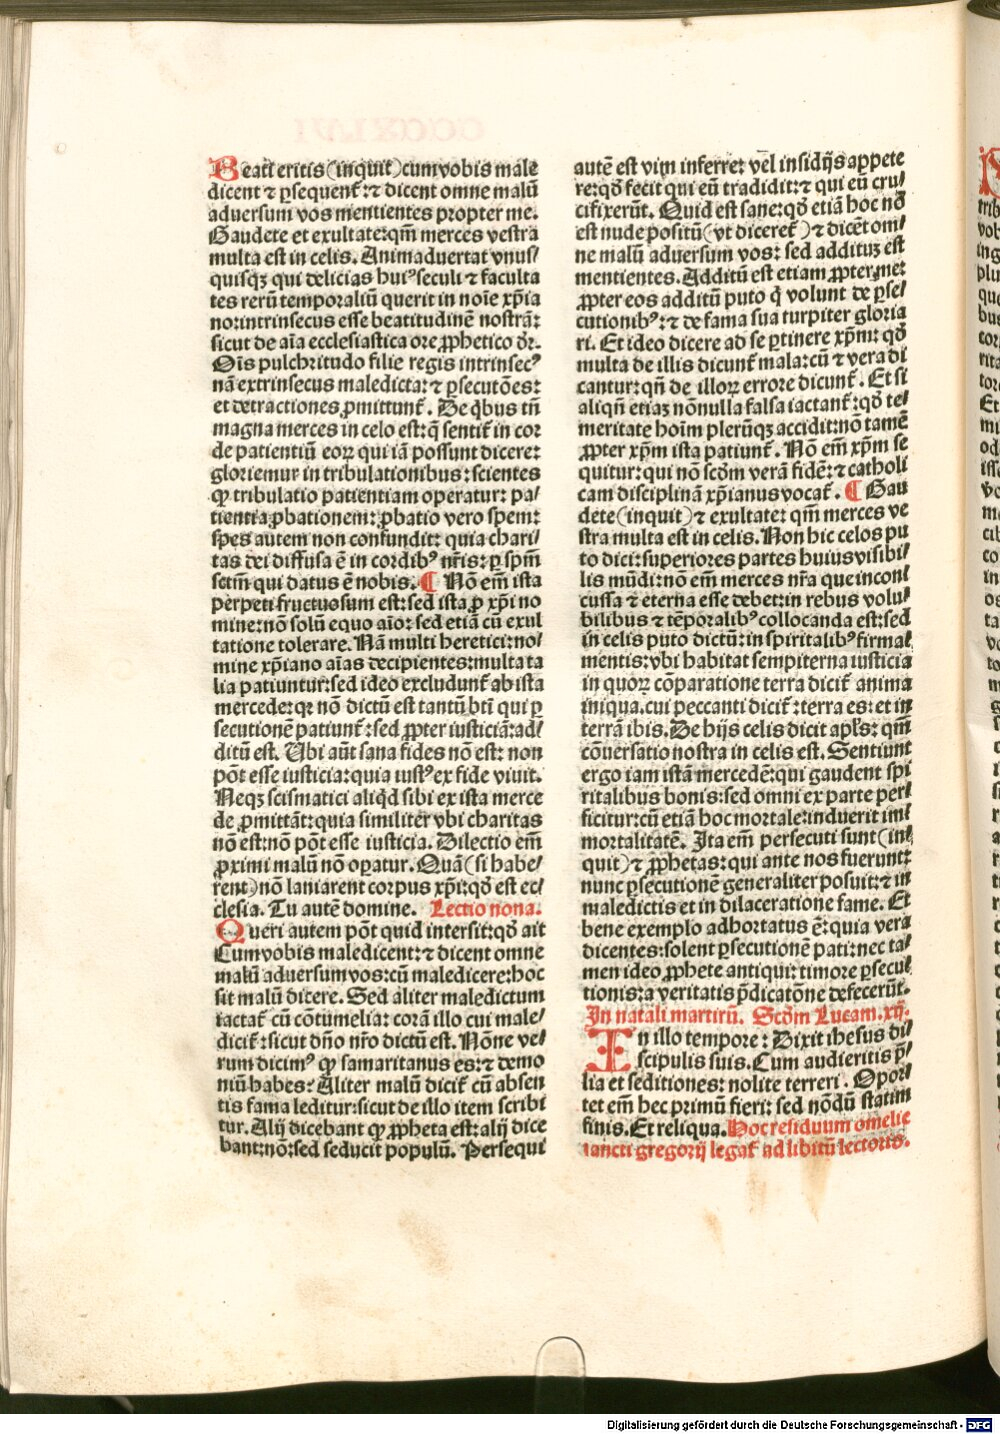 Beati eritis (inquit) cum vobis male
dicent ⁊ ꝑsequent᷑: ⁊ dicent omne malū
aduersum vos mentientes propter me.
Gaudete et exultate: qm̄ merces vestra
multa est in celis. Animaduertat vnus/
quisqꝫ qui delicias huiꝰ seculi ⁊ faculta
tes rerū temporaliū querit in noīe xp̄ia
no: intrinsecus esse beatitudinē nostrā:
sicut de aīa ecclesiastica ore ꝓphetico dr̄.
Oīs pulchritudo filie regis intrinsecꝰ
nā extrinsecus maledicta: ⁊ ꝑsecutōes:
et detractiones ꝓmittunt᷑. De q̄bus tn̄
magna merces in celo est: q̄ sentit᷑ in cor
de patientiū eoꝝ qui iā possunt dicere:
gloriemur in tribulationibus: scientes
ꝙ tribulatio patientiam operatur: pa/
tientia ꝓbationem: ꝓbatio vero spem:
spes autem non confundit: quia chari/
tas dei diffusa ē in cordibꝰ nr̄is: ꝑ spm̄
sctm̄ qui datus ē nobis. ¶ Nō em̄ ista
perpeti fructuosum est: sed ista ꝓ xp̄i no
mine: nō solū equo aīo: sed etiā cū exul
tatione tolerare. Nā multi heretici: no/
mine xp̄iano aīas decipientes: multa ta
lia patiuntur: sed ideo excludunt᷑ ab ista
mercede: qꝛ nō dictū est tantū bt̄i qui ꝑ
secutionē patiunt᷑: sed ꝓpter iusticiā: ad/
ditū est. Ubi aūt sana fides nō est: non
pōt esse iusticia: quia iustꝰ ex fide viuit.
Neqꝫ scismatici aliq̇d sibi ex ista merce
de ꝓmittāt: quia similiter vbi charitas
nō est: nō pōt esse iusticia. Dilectio em̄
ꝓximi malū nō oꝑatur. Quā (si habe/
rent) nō laniarent corpus xp̄i: qd̄ est ec/
clesia. Tu autē domine. Lectio nona.
Queri autem pōt quid intersit: qd̄ ait
Cum vobis maledicent: ⁊ dicent omne
malū aduersum vos: cū maledicere: hoc
sit malū dicere. Sed aliter maledictum
iactat᷑ cū cōtumelia: corā illo cui male/
dicit᷑: sicut dn̄o nr̄o dictū est. Nōne ve/
rum dicimꝰ ꝙ samaritanus es: ⁊ demo
niū habes: Aliter malū dicit᷑ cū absen
tis fama leditur: sicut de illo item scribi
tur. Alij dicebant ꝙ ꝓpheta est: alij dice
bant: nō: sed seducit populū. Persequi
autē est vim inferre: vel insidijs appete
re: qd̄ fecit qui eū tradidit: ⁊ qui eū cru/
cifixerūt. Quid est sane: qd̄ etiā hoc nō
est nude positū (vt diceret᷑) ⁊ dicēt om/
ne malū aduersum vos: sed addituꝫ est
mentientes. Additū est etiam ꝓpter me:
ꝓpter eos additū puto q̇ volunt de ꝑse/
cutionibꝰ: ⁊ de fama sua turpiter gloria
ri. Et ideo dicere ad se ꝑtinere xp̄m: qd̄
multa de illis dicunt᷑ mala: cū ⁊ vera di
cantur: qn̄ de illoꝝ errore dicunt᷑. Et si
aliqn̄ etiaꝫ nōnulla falsa iactant᷑: qd̄ te/
meritate hoīm plerūqꝫ accidit: nō tamē
ꝓpter xp̄m ista patiunt᷑. Nō em̄ xp̄m se
quitur: qui nō scd̄m verā fidē: ⁊ catholi
cam disciplinā xp̄ianus vocat᷑. ¶ Gau
dete (inquit) ⁊ exultate: qm̄ merces ve
stra multa est in celis. Non hic celos pu
to dici: superiores partes huius visibi/
lis mūdi: nō em̄ merces nr̄a que incon/
cussa ⁊ eterna esse debet: in rebus volu/
bilibus ⁊ tēporalibꝰ collocanda est: sed
in celis puto dictū: in spiritalibꝰ firma/
mentis: vbi habitat sempiterna iusticia
in quoꝝ cōparatione terra dicit᷑ anima
iniqua. cui peccanti dicit᷑: terra es: et in
terrā ibis. De hijs celis dicit apl's: qm̄
cōuersatio nostra in celis est. Sentiunt
ergo iam istā mercedē: qui gaudent spi
ritalibus bonis: sed omni ex parte per/
ficitur: cū etiā hoc mortale: induerit im/
mortalitatē. Ita em̄ persecuti sunt (in/
quit) ⁊ ꝓphetas: qui ante nos fuerunt:
nunc ꝑsecutionē generaliter posuit: ⁊ in
maledictis et in dilaceratione fame. Et
bene exemplo adhortatus ē: quia vera
dicentes: solent ꝑsecutionē pati: nec ta/
men ideo ꝓphete antiqui: timore ꝑsecu/
tionis: a veritatis p̄dicatōne defecerūt.
In natali martirū. Scd̄m Lucam. xij.
In illo tempore: Dixit ihesus di/
scipulis suis. Cum audieritis p̄/
lia et seditiones: nolite terreri. Opor/
tet em̄ hec primū fieri: sed nōdū statim
finis. Et reliqua. Hoc residuum omelie
sancti gregorij legat᷑ ad libitū lectoris.
Digitalisierung gefördert durch die Deutsche Forschungsgemeinschaft - DFG